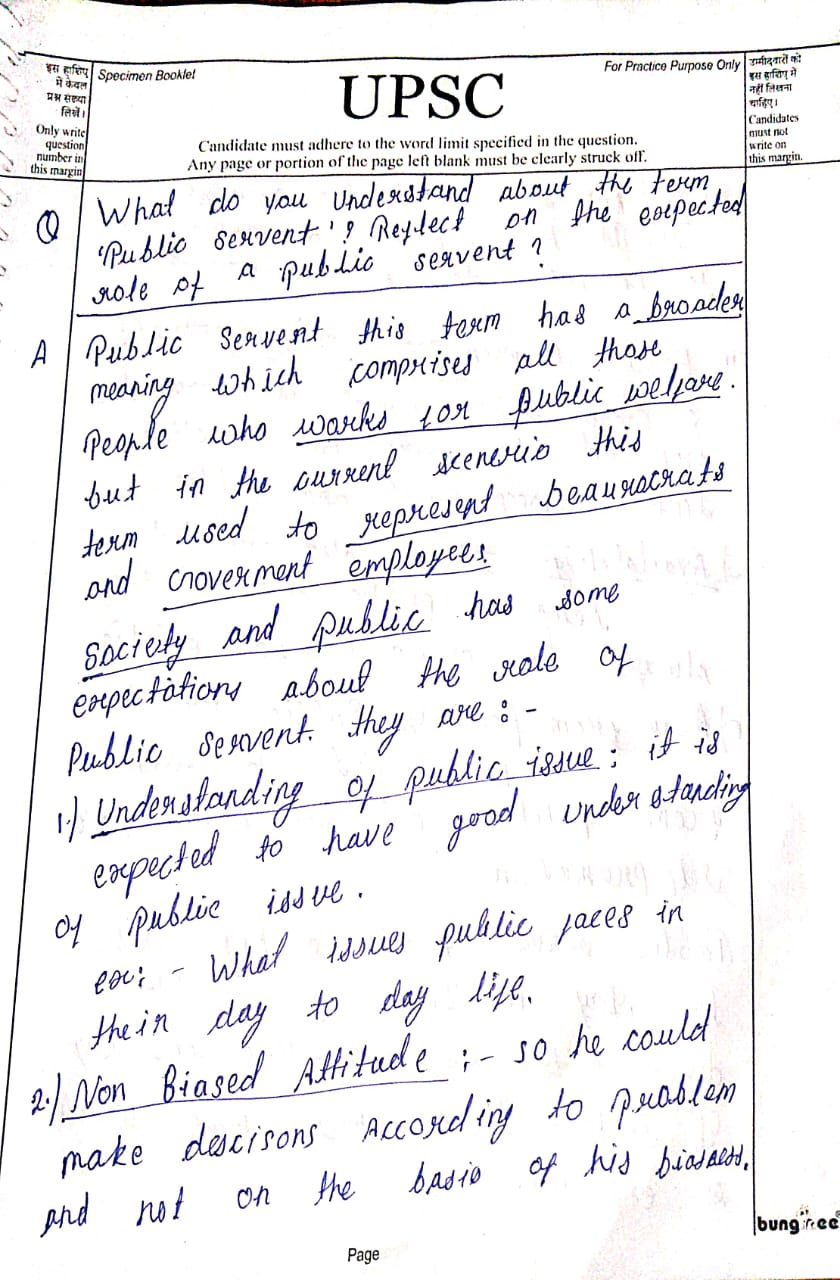 इस हाशिए
में केवल
प्रश्न संख्या
लिखें।
Only write
question
number in
this margin
Specimen Booklet
For Practice Purpose Only
UPSC
Candidate must adhere to the word limit specified in the question.
Any page or portion of the page left blank must be clearly struck off.
उम्मीदवारों को
इस हाशिए में
नहीं लिखना
चाहिए।
Candidates
must not
write on
this margin.
Q What do you Understand about the term
'Public Servent'? Reflect on the expected
role of a public servent?
A Public Servent this term has a broader
meaning which comprises all those
People who works for public welfare.
but in the current scenerio this
term used to represent beaurocrats
and Goverment employees.
Society and public has some
expectations about the role of
Public servent. they are : -
1.) Understanding of public issue : it is
expected to have good understanding
of public issue.
ex: - What issues public faces in
their day to day life.
2.) Non Biased Attitude : - so he could
make descisons According to problem
and not on the basis of his biasness.
bung ree
Page